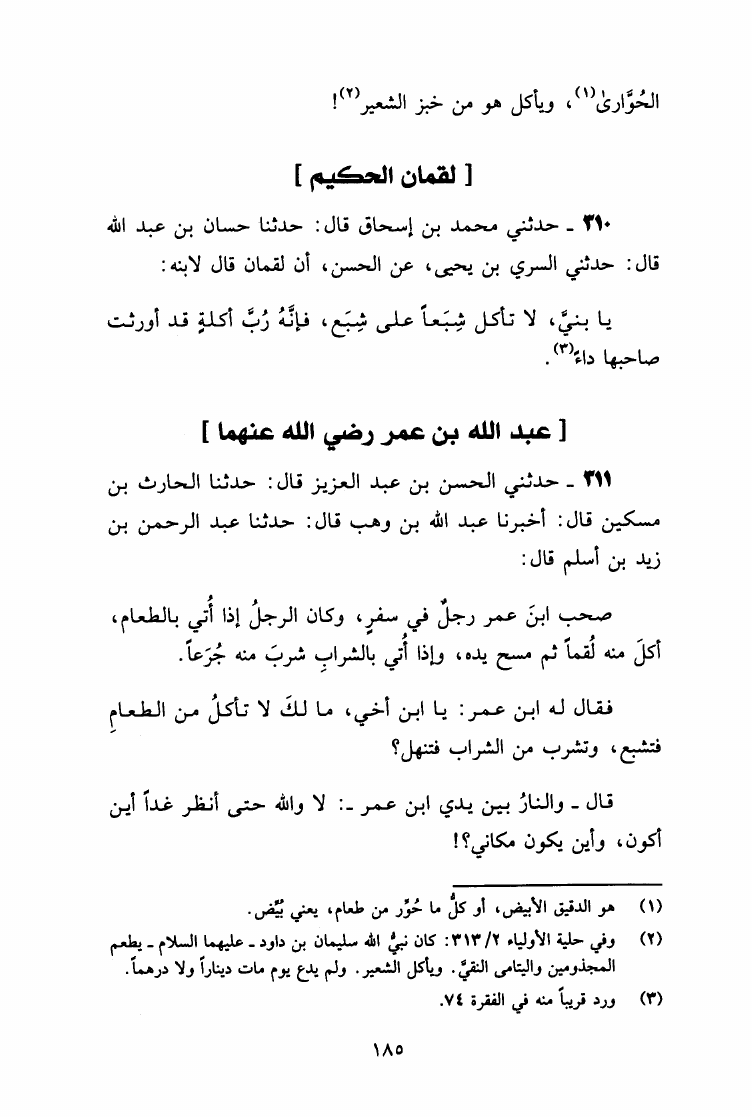 الحُوَّارىٰ(١)، ويأكل هو من خبز الشعير(٢)!
[ لقمان الحكيم ]
٣١٠ ـ حدثني محمد بن إسحاق قال: حدثنا حسان بن عبد الله
قال: حدثني السري بن يحيى، عن الحسن، أن لقمان قال لابنه:
يا بنيَّ، لا تأكل شِبَعاً على شِبَع، فإنَّهُ رُبَّ أكلةٍ قد أورثت
صاحبها داءً(٣).
[ عبد الله بن عمر رضي الله عنهما ]
٣١١ ـ حدثني الحسن بن عبد العزيز قال: حدثنا الحارث بن
مسكين قال: أخبرنا عبد الله بن وهب قال: حدثنا عبد الرحمن بن
زيد بن أسلم قال:
صحب ابنَ عمر رجلٌ في سفرٍ، وكان الرجلُ إذا أُتي بالطعام،
أكلَ منه لُقماً ثم مسح يده، وإذا أُتي بالشرابِ شربَ منه جُرَعاً.
فقال له ابن عمر: يا ابن أخي، ما لكَ لا تأكلُ من الطعامِ
فتشبع، وتشرب من الشراب فتنهل؟
قال ـ والنارُ بين يدي ابن عمر ـ: لا والله حتى أنظر غداً أين
أكون، وأين يكون مكاني؟!
(١) هو الدقيق الأبيض، أو كلُّ ما حُوِّر من طعام، يعني بُيِّض.
(٢) وفي حلية الأولياء ٣١٣/٢: كان نبيُّ الله سليمان بن داود ـ عليهما السلام ـ يطعم
المجذومين واليتامى النقيَّ. ويأكل الشعير. ولم يدع يوم مات ديناراً ولا درهماً.
(٣) ورد قريباً منه في الفقرة ٧٤.
١٨٥